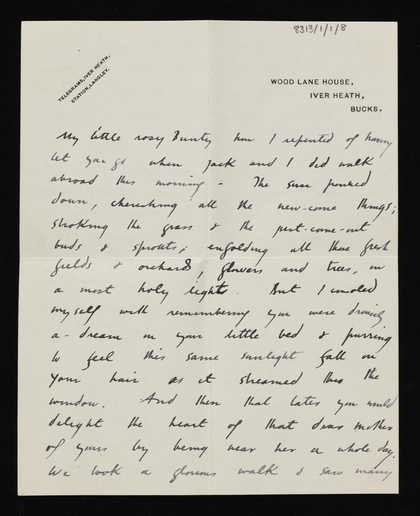 8313/1/1/8
TELEGRAMS, IVER HEATH.
STATION, LANGLEY.
WOOD LANE HOUSE,
IVER HEATH,
BUCKS.
My little rosy Bunty how I repented of having
let you go when Jack and I did walk
abroad this morning - The sun poured
down, cherishing all the new-come things;
stroking the grass & the just-come-out
buds & sprouts; enfolding all these fresh
fields & orchards, flowers and trees, in
a most holy light. But I consoled
myself with remembering you were drowsily
a-dream in your little bed & purring
to feel this same sunlight fall on
your hair as it streamed thro the
window. And then that later you would
delight the heart of that dear mother
of yours by being near her a whole day.
We took a glorious walk & saw many